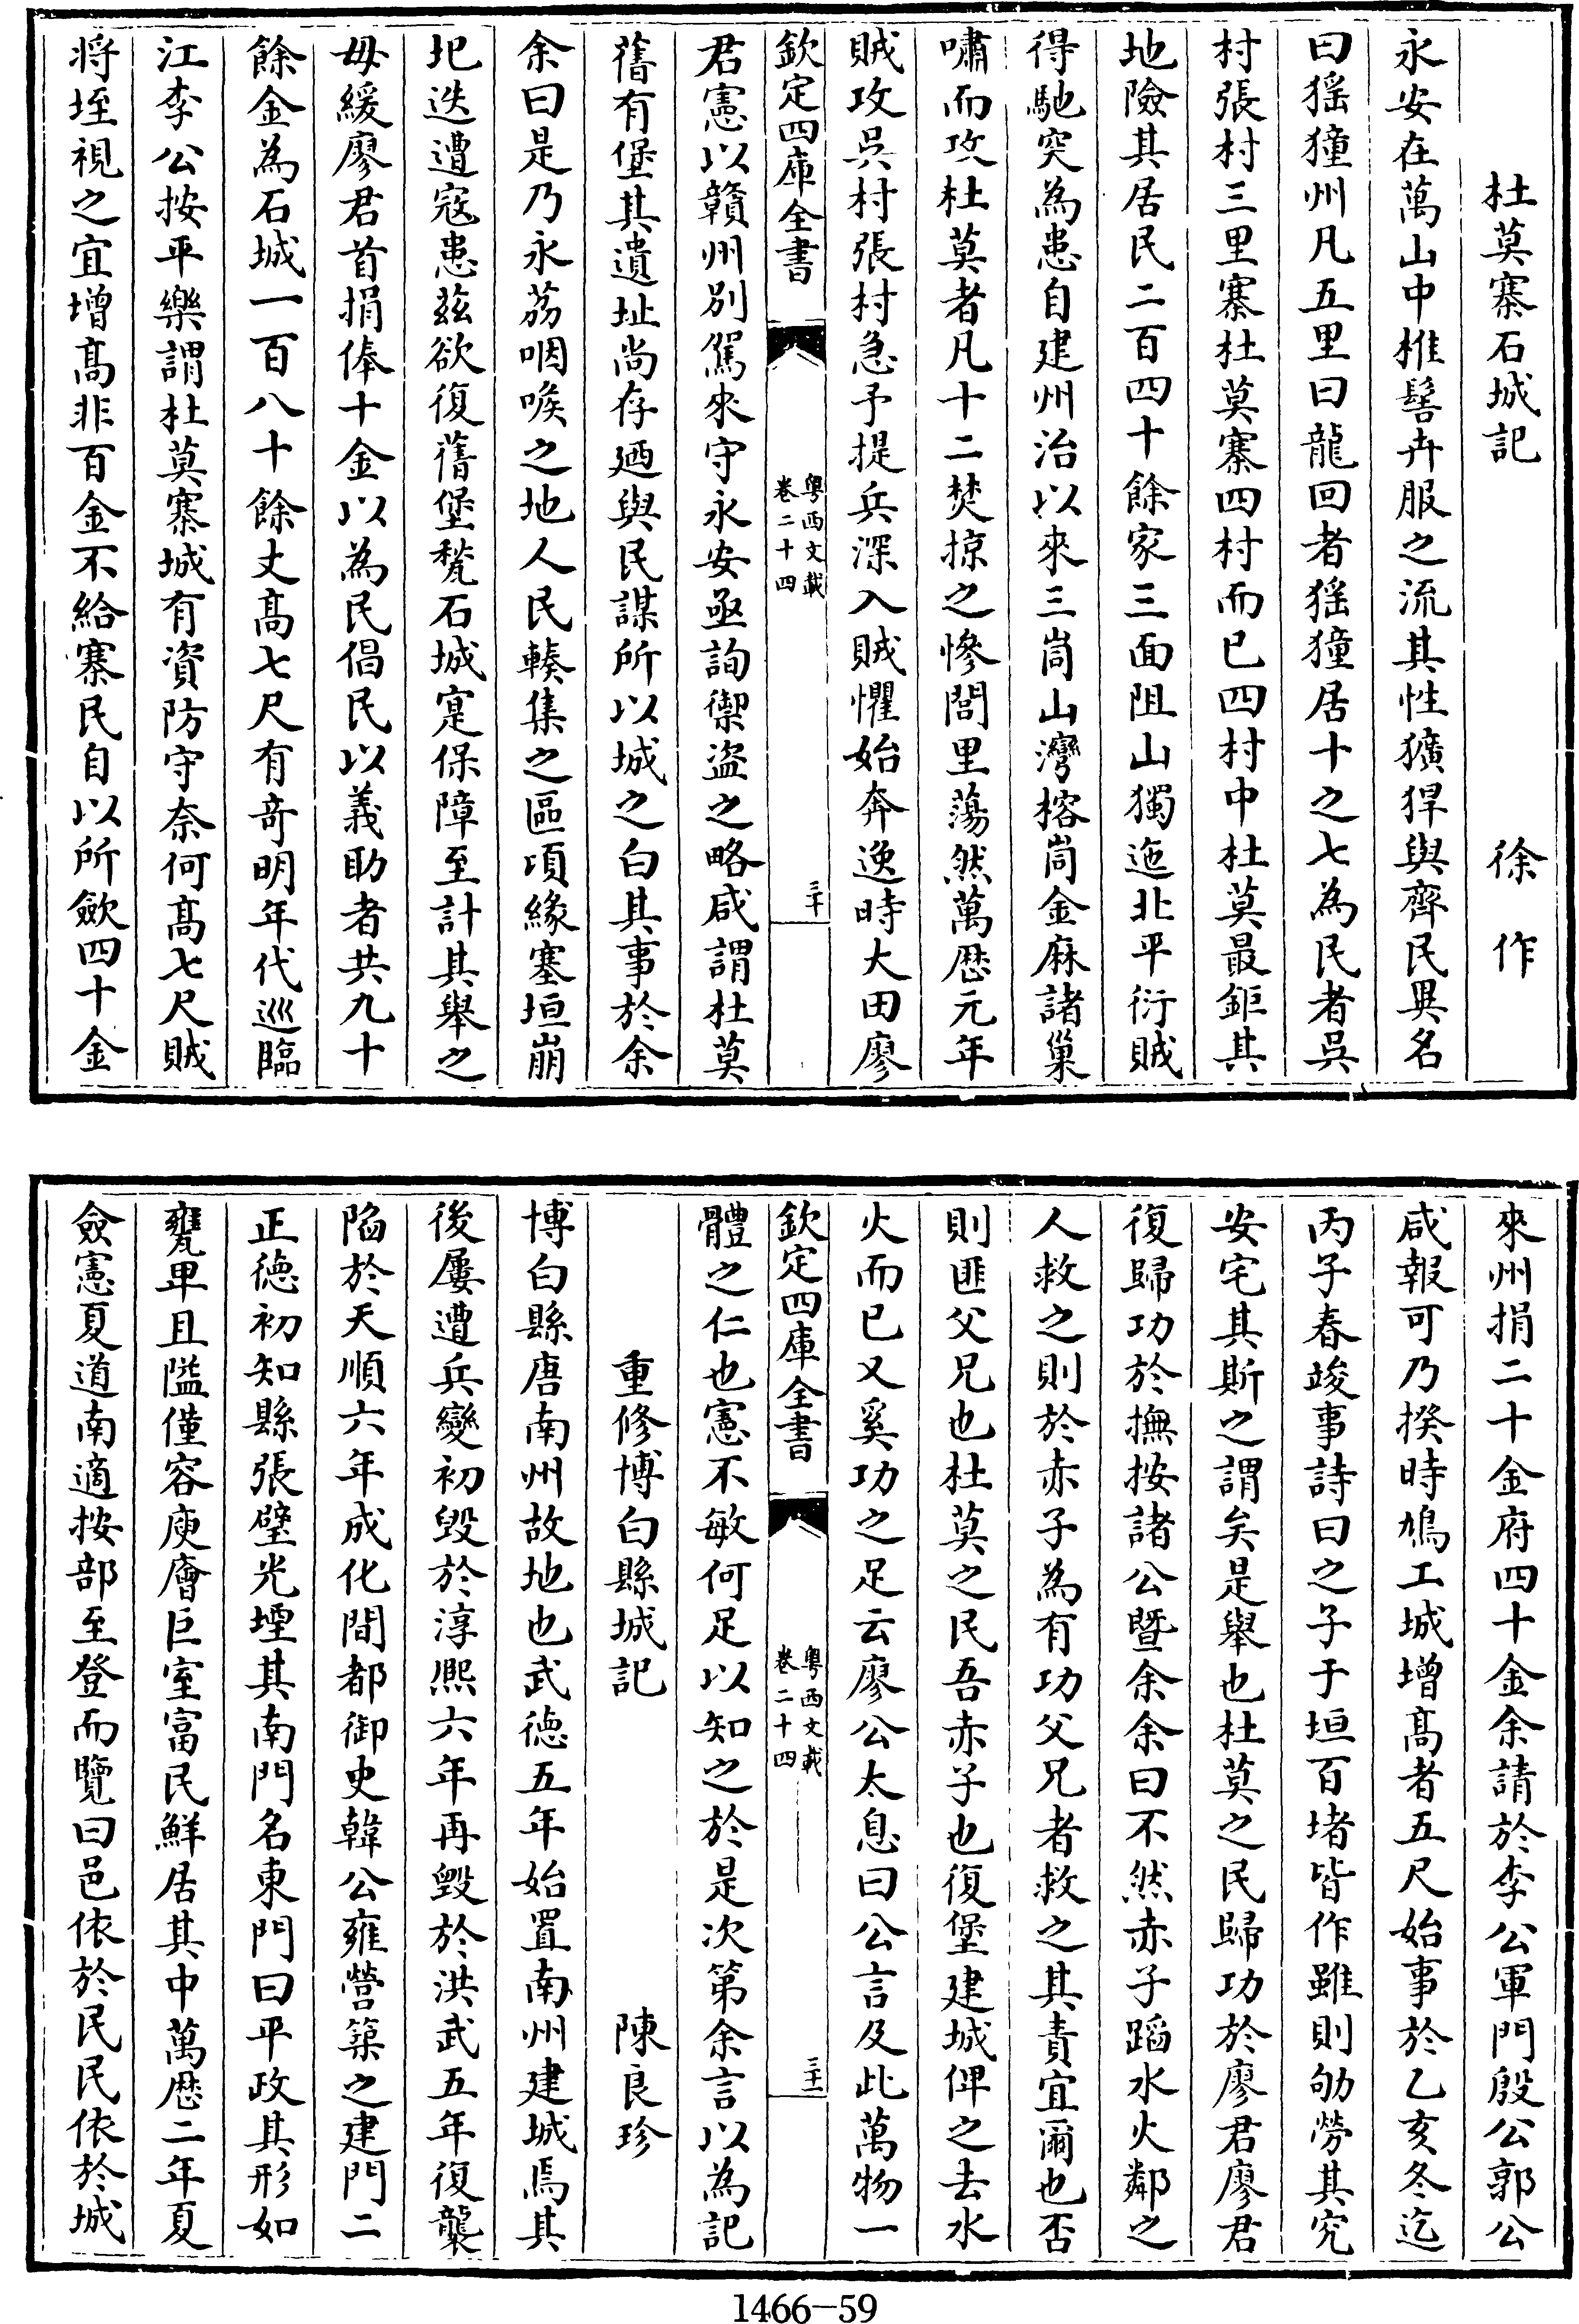 杜莫寨石城記 徐作
永安在萬山中椎髻卉服之流其性獷猂與齊民異名
曰猺獞州凡五里曰龍回者猺獞居十之七為民者吳
村張村三里寨杜莫寨四村而已四村中杜莫最鉅其
地險其居民二百四十餘家三面阻山獨迤北平衍賊
得馳突為患自建州治以來三峝山灣榕峝金麻諸巢
嘯而攻杜莫者凡十二焚掠之慘閭里蕩然萬厯元年
賊攻吳村張村急予提兵深入賊懼始奔逸時大田廖
欽定四庫全書 粤西文載 卷二十四 三十
君憲以贛州別駕來守永安亟詢禦盜之略咸謂杜莫
舊有堡其遺址尚存廼與民謀所以城之白其事於余
余曰是乃永荔咽喉之地人民輳集之區項緣塞垣崩
圮迭遭寇患茲欲復舊堡甃石城寔保障至計其舉之
毋緩廖君首捐俸十金以為民倡民以義助者共九十
餘金為石城一百八十餘丈髙七尺有奇明年代巡臨
江李公按平樂謂杜莫寨城有資防守奈何髙七尺賊
将垤視之宜增髙非百金不給寨民自以所歛四十金
來州捐二十金府四十金余請於李公軍門殷公郭公
咸報可乃揆時鳩工城增髙者五尺始事於乙亥冬迄
丙子春竣事詩曰之子于垣百堵皆作雖則劬勞其究
安宅其斯之謂矣是舉也杜莫之民歸功於廖君廖君
復歸功於撫按諸公暨余余曰不然赤子蹈水火鄰之
人救之則於赤子為有功父兄者救之其責宜爾也否
則匪父兄也杜莫之民吾赤子也復堡建城俾之去水
火而已又奚功之足云廖公太息曰公言及此萬物一
欽定四庫全書 粤西文載 卷二十四 三十一
體之仁也憲不敏何足以知之於是次第余言以為記
重修博白縣城記 陳良珍
博白縣唐南州故地也武徳五年始置南州建城焉其
後屢遭兵變初毀於淳熙六年再毀於洪武五年復襲
陷於天順六年成化間都御史韓公雍營築之建門二
正徳初知縣張璧光堙其南門名東門曰平政其形如
甕卑且隘僅容庾廥巨室富民鮮居其中萬厯二年夏
僉憲夏道南適按部至登而覽曰邑依於民民依於城
1466—59